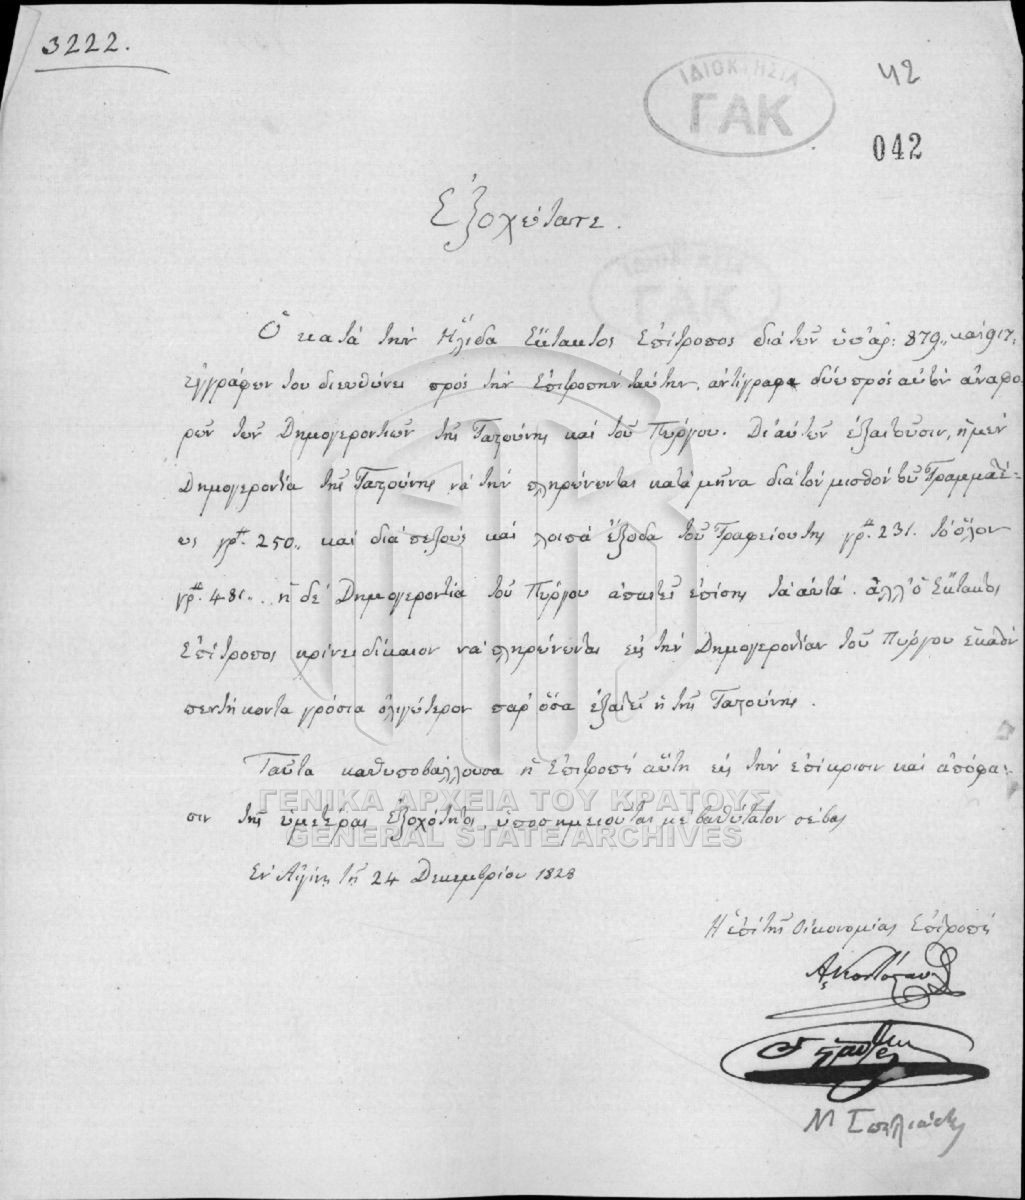 3222.
ΙΔΙΟΚΤΗΣΙΑ
ΓΑΚ
42
042
Ἐξοχώτατε.
Ὁ κατὰ τὴν Ἤλιδα Ἔκτακτος Ἐπίτροπος διὰ τῶν ὑπ' ἀρ: 879,, καὶ 917,,
ἐγγράφων του διευθύνει πρὸς τὴν Ἐπιτροπὴν ταύτην, ἀντίγραφα δύω πρὸς αὐτὸν ἀναφο
ρῶν τῶν Δημογεροντιῶν τῆς Γαστούνης καὶ τοῦ Πύργου. Δι' αὐτῶν ἐξαιτοῦσιν, ἡ μὲν
Δημογεροντία τῆς Γαστούνης νὰ τὴν πληρώνωνται κατὰ μῆνα διὰ τὸν μισθὸν τοῦ Γραμματέ-
ως γρ. 250,, καὶ διὰ πεζοὺς καὶ λοιπὰ ἔξοδα τοῦ Γραφείου της γρ. 231. τὸ ὅλον
γρ. 481,,. ἡ δὲ Δημογεροντία τοῦ Πύργου ἀπαιτεῖ ἐπίσης τὰ αὐτά. ἀλλ' ὁ Ἔκτακτος
Ἐπίτροπος κρίνει δίκαιον νὰ πληρώνωνται εἰς τὴν Δημογεροντίαν τοῦ Πύργου ἑκατὸν
πεντήκοντα γρόσια ὀλιγώτερον παρ' ὅσα ἐξαιτεῖ ἡ τῆς Γαστούνης.
Ταῦτα καθυποβάλλουσα ἡ Ἐπιτροπὴ αὕτη εἰς τὴν ἐπίκρισιν καὶ ἀπόφα
σιν τῆς ὑμετέρας Ἐξοχότητος, ὑποσημειοῦται μὲ βαθύτατον σέβας
ΓΕΝΙΚΑ ΑΡΧΕΙΑ ΤΟΥ ΚΡΑΤΟΥΣ
GENERAL STATE ARCHIVES
Ἐν Αἰγίνῃ τῇ 24 Δεκεμβρίου 1828
Ἡ ἐπὶ τῆς Οἰκονομίας Ἐπιτροπὴ
Α. Κοντόσταυλος